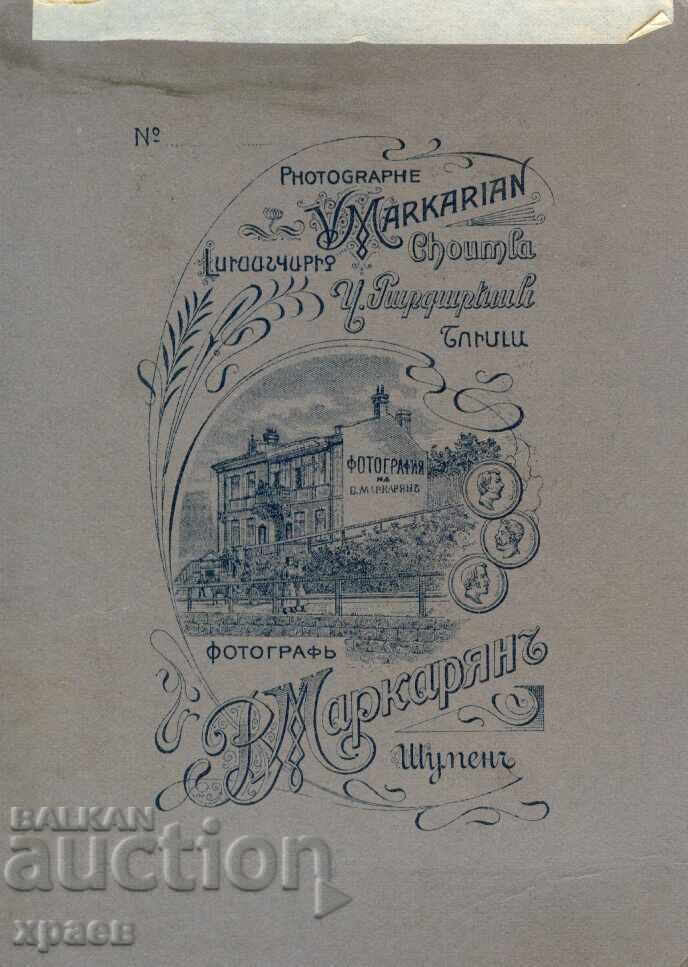 №
PHOTOGRAPHE
V MARKARIAN
Choumla
ԼՈՒՍԱՆԿԱՐԻՉ
Վ. Մարգարեան
ՇՈՒՄԼԱ
ФОТОГРАФИЯ
НА
В. МАРКАРЯНЪ
ФОТОГРАФЪ
В Маркарянъ
Шуменъ
BALKAN
auction
храев